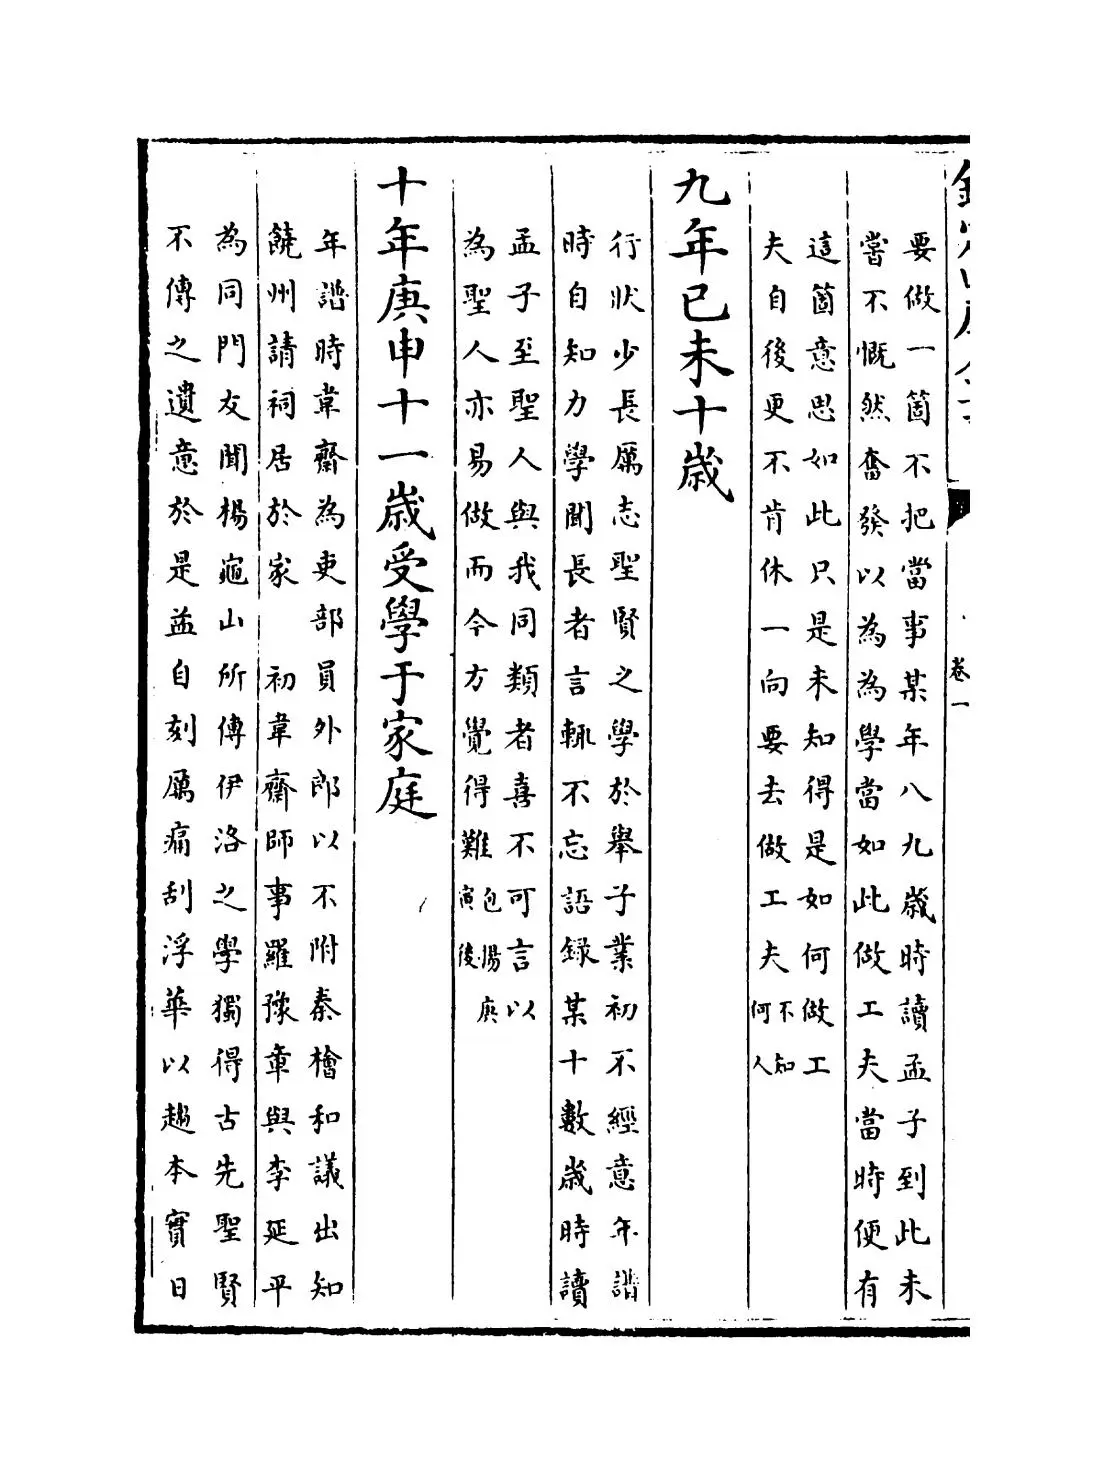 卷一
要做一箇不把當事某年八九歲時讀孟子到此未
嘗不慨然奮發以為為學當如此做工夫當時便有
這箇意思如此只是未知得是如何做工
夫自後更不肯休一向要去做工夫
不知
何人
九年已未十歲
行狀少長厲志聖賢之學於舉子業初不經意年譜
時自知力學聞長者言輒不忘語録某十數歲時讀
孟子至聖人與我同類者喜不可言以
為聖人亦易做而今方覺得難
包揚庚
寅後
十年庚申十一歲受學于家庭
年譜時韋齋為吏部員外郎以不附秦檜和議出知
饒州請祠居於家 初韋齋師事羅豫章與李延平
為同門友聞楊龜山所傳伊洛之學獨得古先聖賢
不傳之遺意於是益自刻厲痛刮浮華以趨本實日